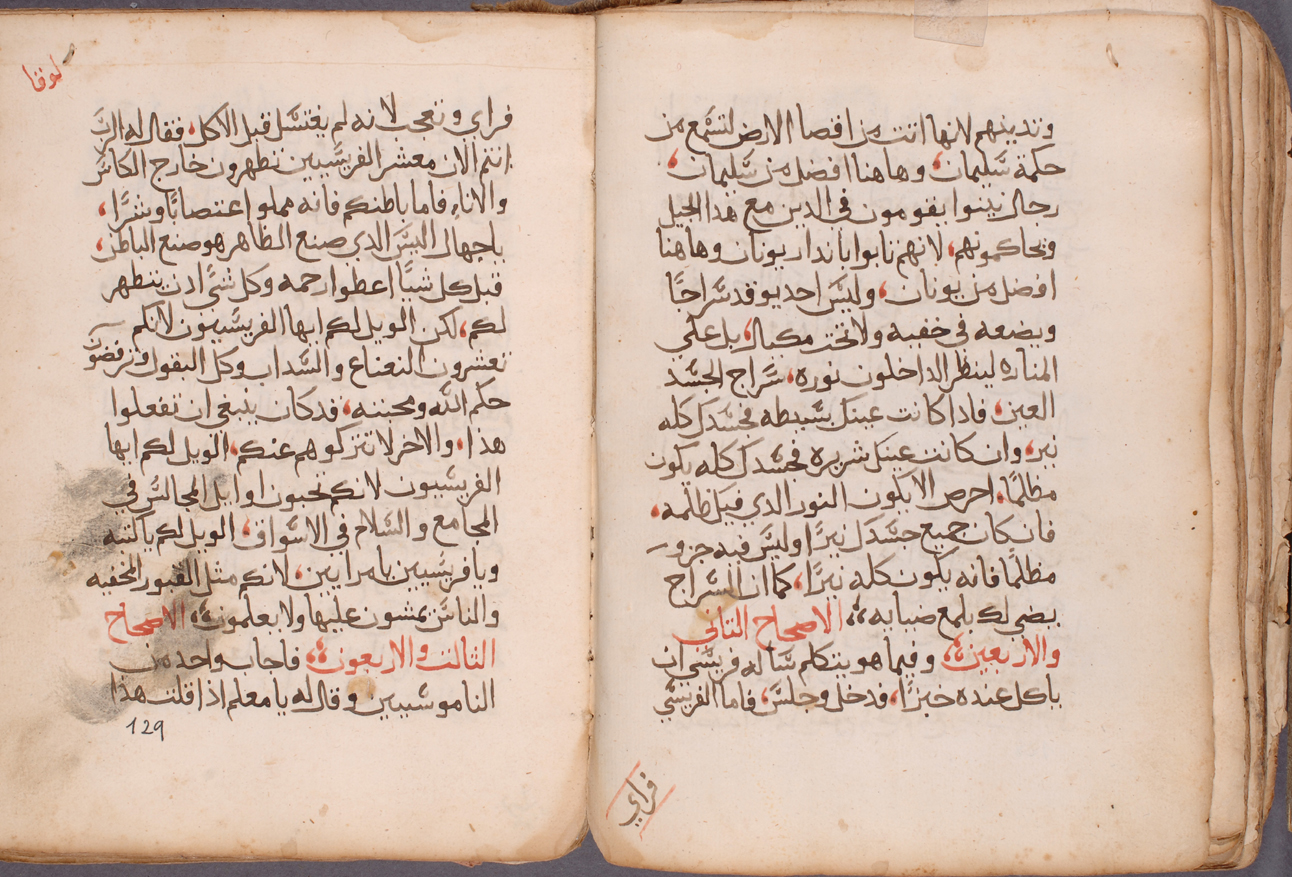 وتدينهم لانها اتت من اقصا الارض لتسمع من
حكمة سليمان، وهاهنا افضل من سليمان،
رجال نينوا يقومون في الدين مع هدا الجيل
ويحاكمونهم، لانهم تابوا باندار يونان وهاهنا
افضل من يونان، وليس احد يوقد سراجًا
ويضعه في خفيه ولا تحت مكيال، بل على
المناره لينظر الداخلون نوره، سراج الجسد
العين، فادا كانت عينك بسيطه فجسدك كله
نير، وان كانت عينك شريره فجسدك كله يكون
مظلمًا، احرص الا يكون النور الدي فيك ظلمه،
فان كان جميع جسدك نيرًا وليس فيه جزو
مظلمًا فانه يكون كله نيرًا، كما ان السراج
يضي لك بلمع ضيايه، الاصحاح التاني
والاربعين، وفيما هو يتكلم ساله فريسي ان
ياكل عنده خبزًا، فدخل وجلس، فاما الفريسي
فراي
لوقا
فراي وتعجب لانه لم يغتسل قبل الاكل، فقال له الرب
انتم الان معشر الفريسيين تطهرون خارج الكاس
والاناء فاما باطنكم فانه مملو اغتصابًا وشرًا،
ياجهال اليس الدي صنع الظاهر هو صنع الباطن،
قبل كل شيًا اعطوا رحمه وكل شي ادن يتطهر
لكم، لكن الويل لكم ايها الفريسيون لانكم
تعشرون النعناع والسداب وكل البقول وترفضون
حكم الله ومحبته، قد كان ينبغي ان تفعلوا
هذا، والاخر لا تتركوهم عنكم، الويل لكم ايها
الفريسيون لانكم تحبون اوايل المجالس في
المجامع والسلام في الاسواق، الويل لكم ياكتبه
ويافريسيين يامرايين، لانكم مثل القبور المخفيه
والناس يمشون عليها ولا يعلمون، الاصحاح
الثالث والاربعون، فاجاب واحد من
الناموسيين وقال له يا معلم اذا قلت هذا
129